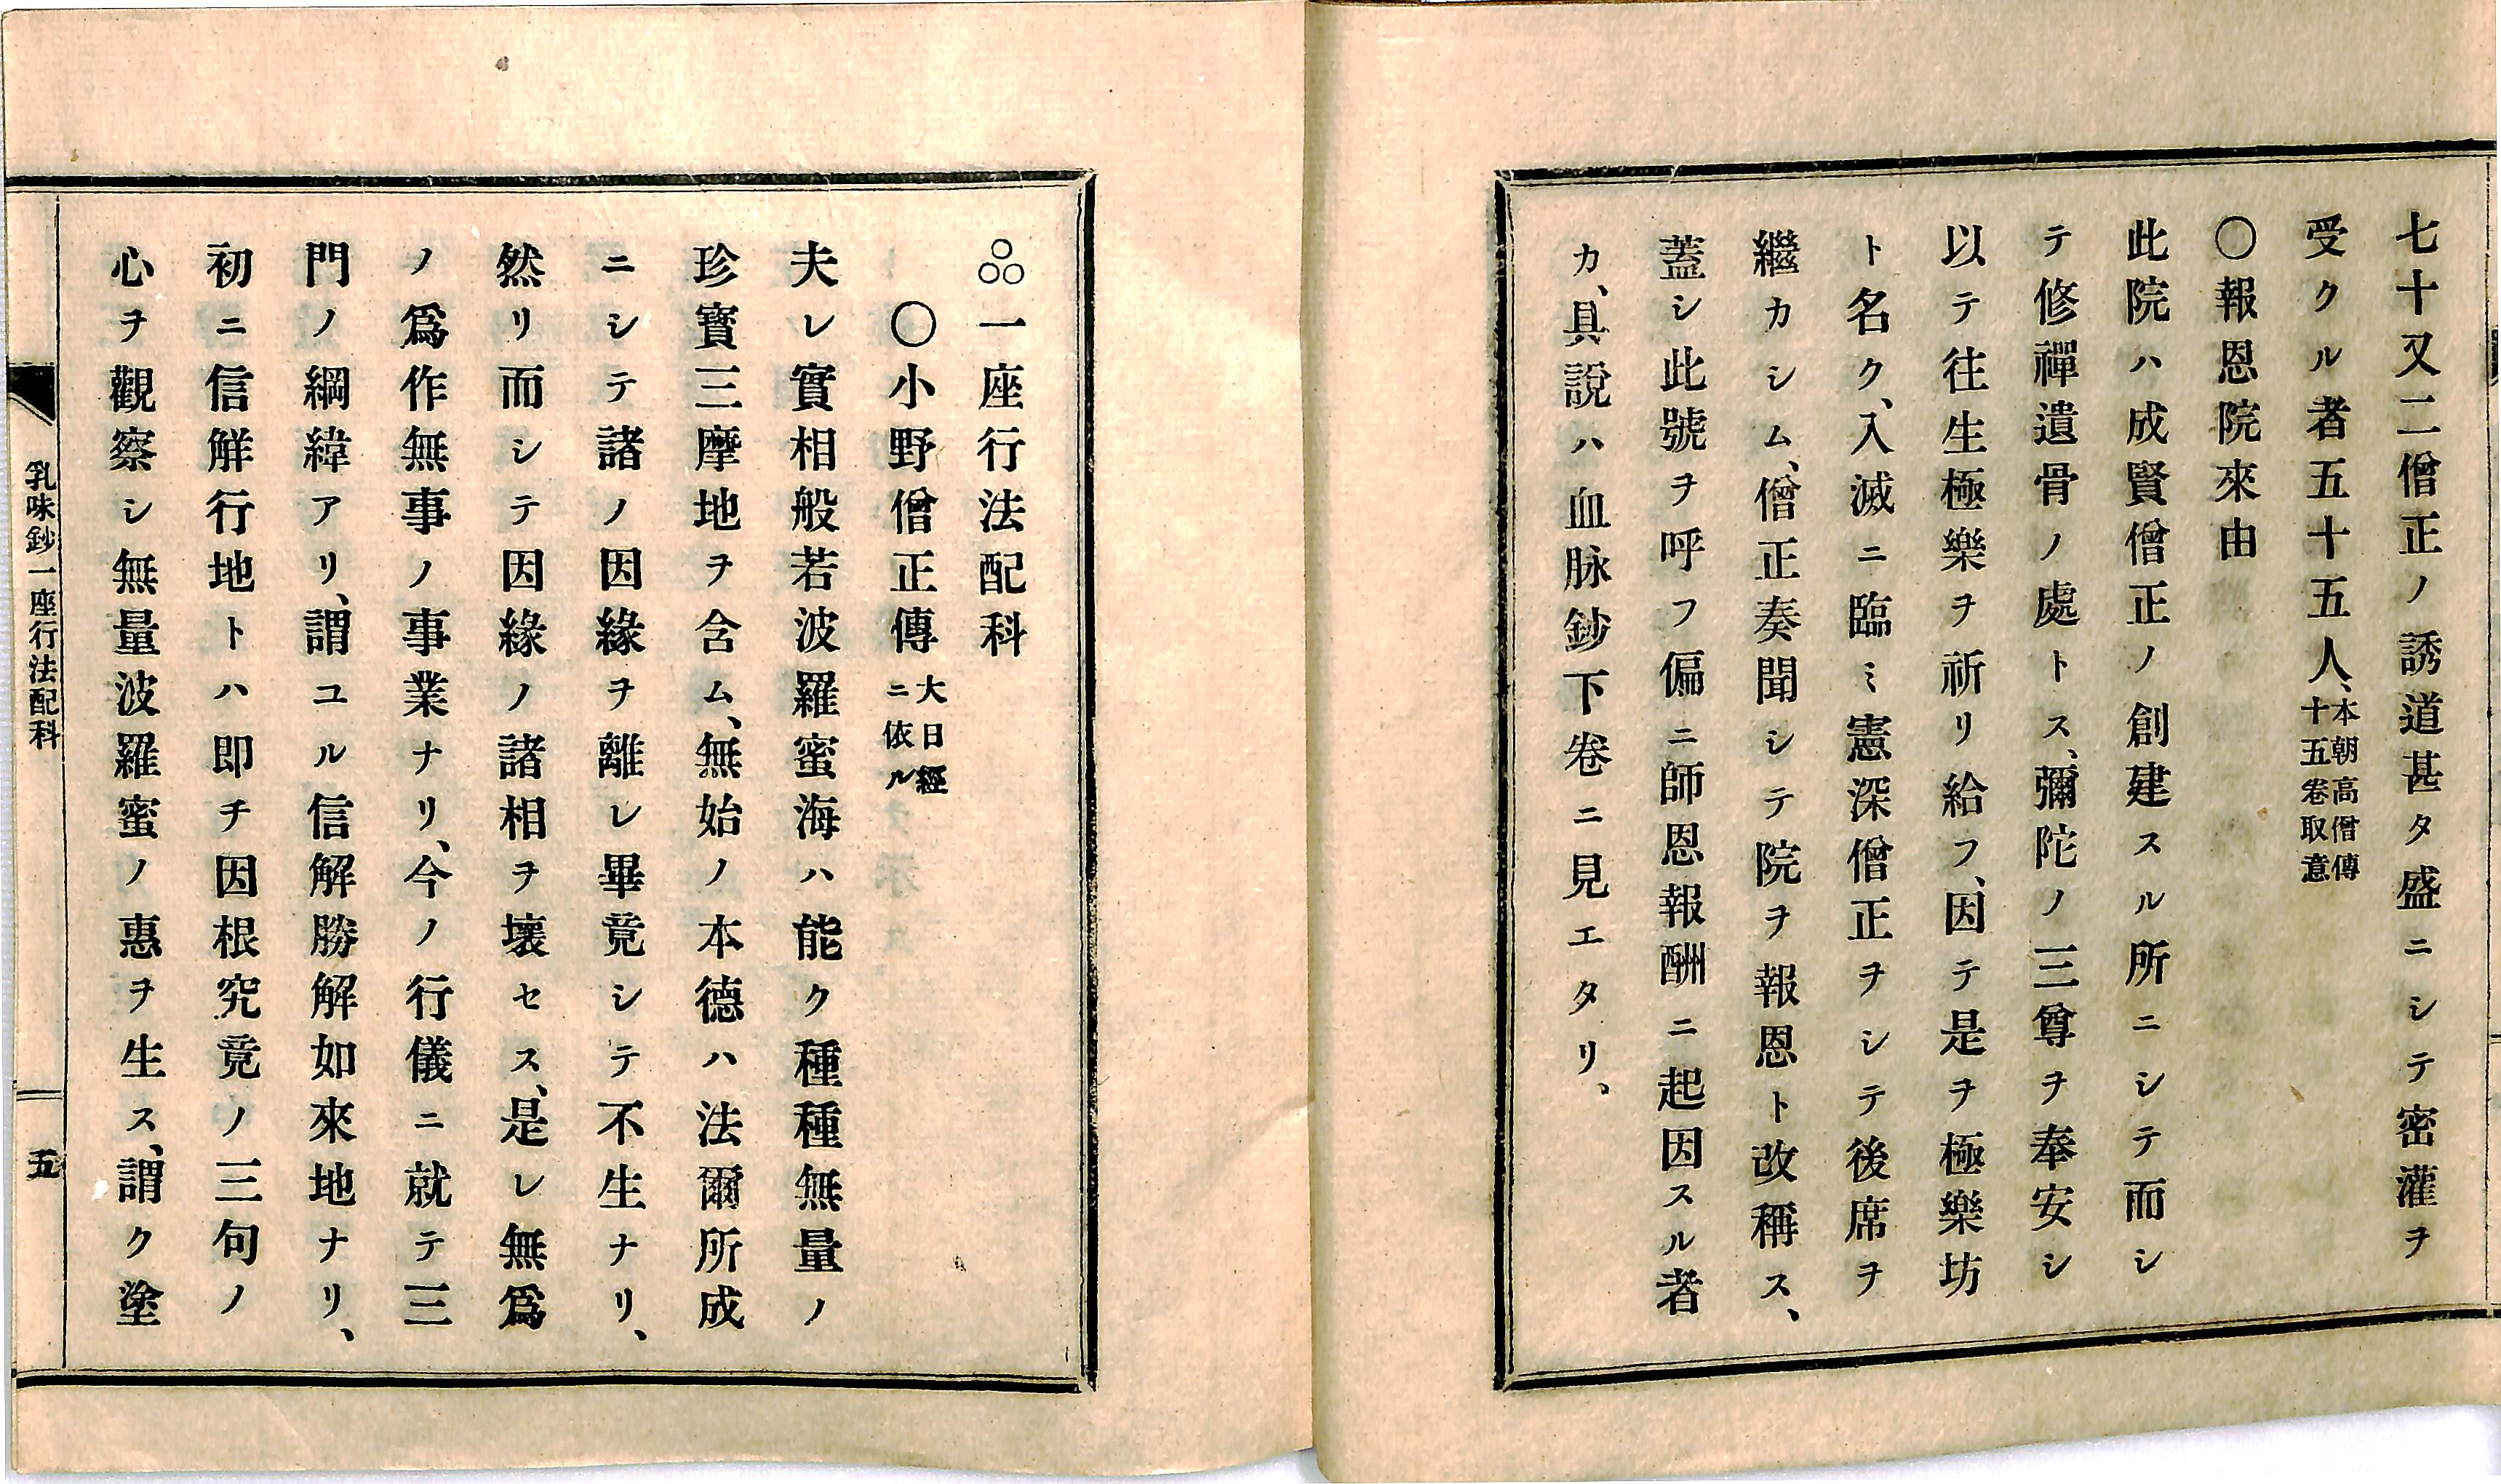 七十又二僧正ノ誘道甚タ盛ニシテ密灌ヲ
受クル者五十五人、本朝高僧傳
十五卷取意
〇報恩院來由
此院ハ成賢僧正ノ創建スル所ニシテ而シ
テ修禪遺骨ノ處トス、彌陀ノ三尊ヲ奉安シ
以テ往生極樂ヲ祈リ給フ、因テ是ヲ極樂坊
ト名ク、入滅ニ臨ミ憲深僧正ヲシテ後席ヲ
繼カシム、僧正奏聞シテ院ヲ報恩ト改稱ス、
蓋シ此號ヲ呼フ偏ニ師恩報酬ニ起因スル者
カ、具說ハ血脉鈔下卷ニ見エタリ、
一座行法配科
〇小野僧正傳大日經
ニ依ル
夫レ實相般若波羅蜜海ハ能ク種種無量ノ
珍寶三摩地ヲ含ム、無始ノ本德ハ法爾所成
ニシテ諸ノ因緣ヲ離レ畢竟シテ不生ナリ、
然リ而シテ因緣ノ諸相ヲ壞セス、是レ無爲
ノ爲作無事ノ事業ナリ、今ノ行儀ニ就テ三
門ノ綱緯アリ、謂ユル信解勝解如來地ナリ、
初ニ信解行地トハ即チ因根究竟ノ三句ノ
心ヲ觀察シ無量波羅蜜ノ惠ヲ生ス、謂ク塗
乳味鈔一座行法配科
五